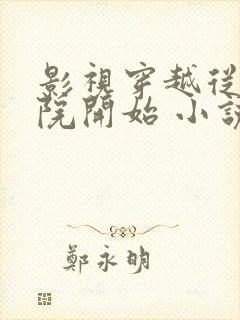 影視穿越從
院開始 小說
鄭永明